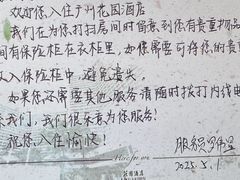 欢迎您入住广州花园酒店
我们在为你打扫房间时留意到你有贵重物品
间有保险柜在衣柜里，如你需要可将您的贵
入保险柜中，避免遗失。
如果您还需要其他服务请随时拨打内线电
系我们，我们很乐意为您服务！
祝您入住愉快！
服务员
Here for you
2025.5.1
花园酒店